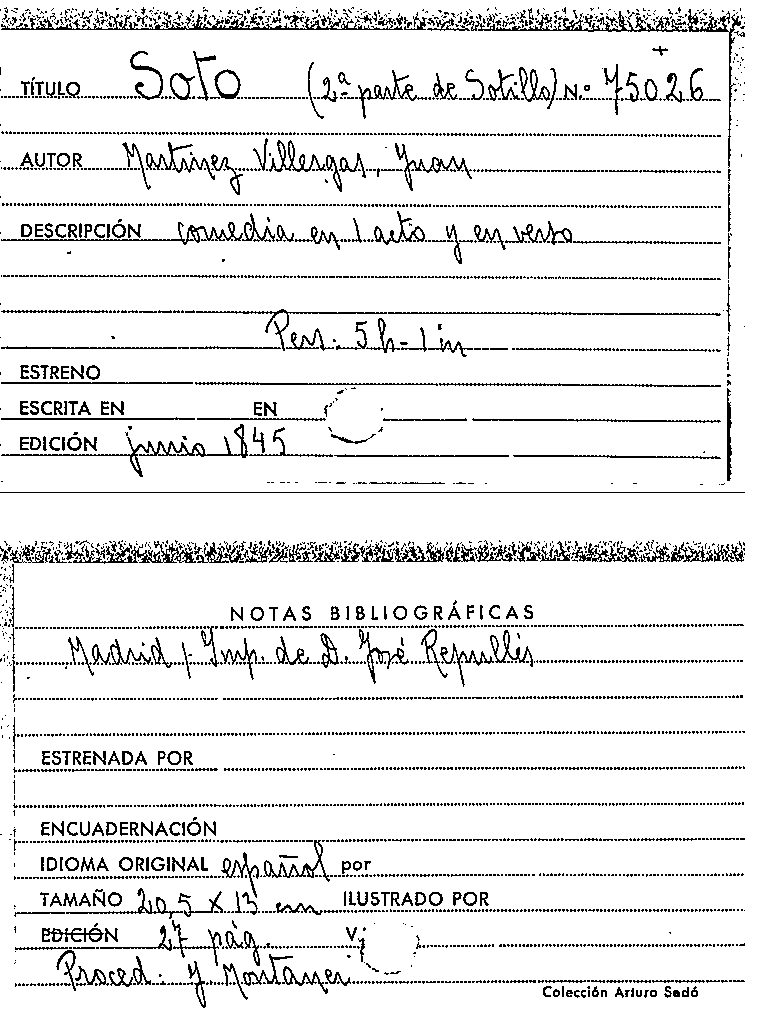 TÍTULO Soto (2ª parte de Sotillo) N.º 75026
AUTOR Martínez Villergas, Juan
DESCRIPCIÓN comedia en 1 acto y en verso
Pers. 5 h - 1 m
ESTRENO
ESCRITA EN EN
EDICIÓN junio 1845
NOTAS BIBLIOGRÁFICAS
Madrid / Imp. de D. José Repullés
ESTRENADA POR
ENCUADERNACIÓN
IDIOMA ORIGINAL español por
TAMAÑO 20,5 X 13 cm ILUSTRADO POR
EDICIÓN 27 pág.
Proced. Y Montaner
Colección Arturo Sedó